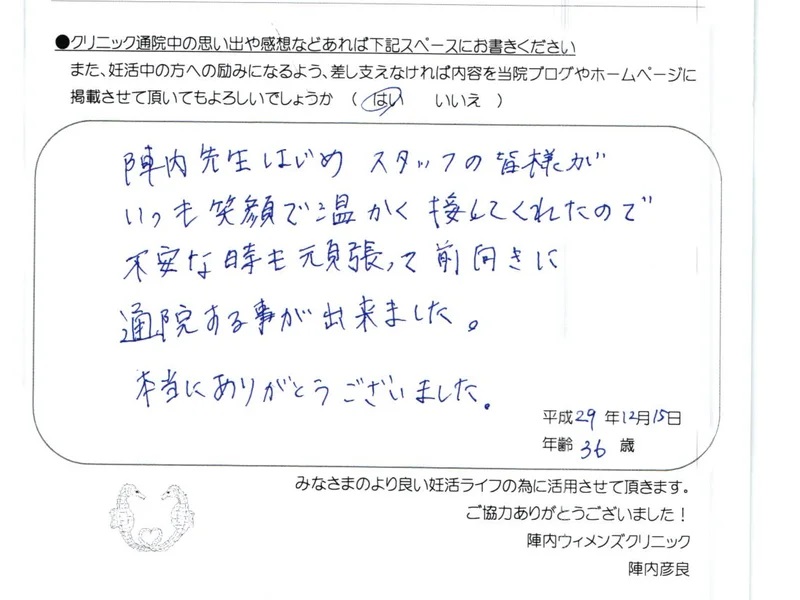 ●クリニック通院中の思い出や感想などあれば下記スペースにお書きください
また、妊活中の方への励みになるよう、差し支えなければ内容を当院ブログやホームページに
掲載させて頂いてもよろしいでしょうか （ はい いいえ ）
陣内先生はじめ スタッフの皆様が
いつも笑顔で温かく接してくれたので
不安な時も頑張って前向きに
通院する事が出来ました。
本当にありがとうございました。
平成29年12月15日
年齢 36 歳
みなさまのより良い妊活ライフの為に活用させて頂きます。
ご協力ありがとうございました！
陣内ウィメンズクリニック
陣内彦良